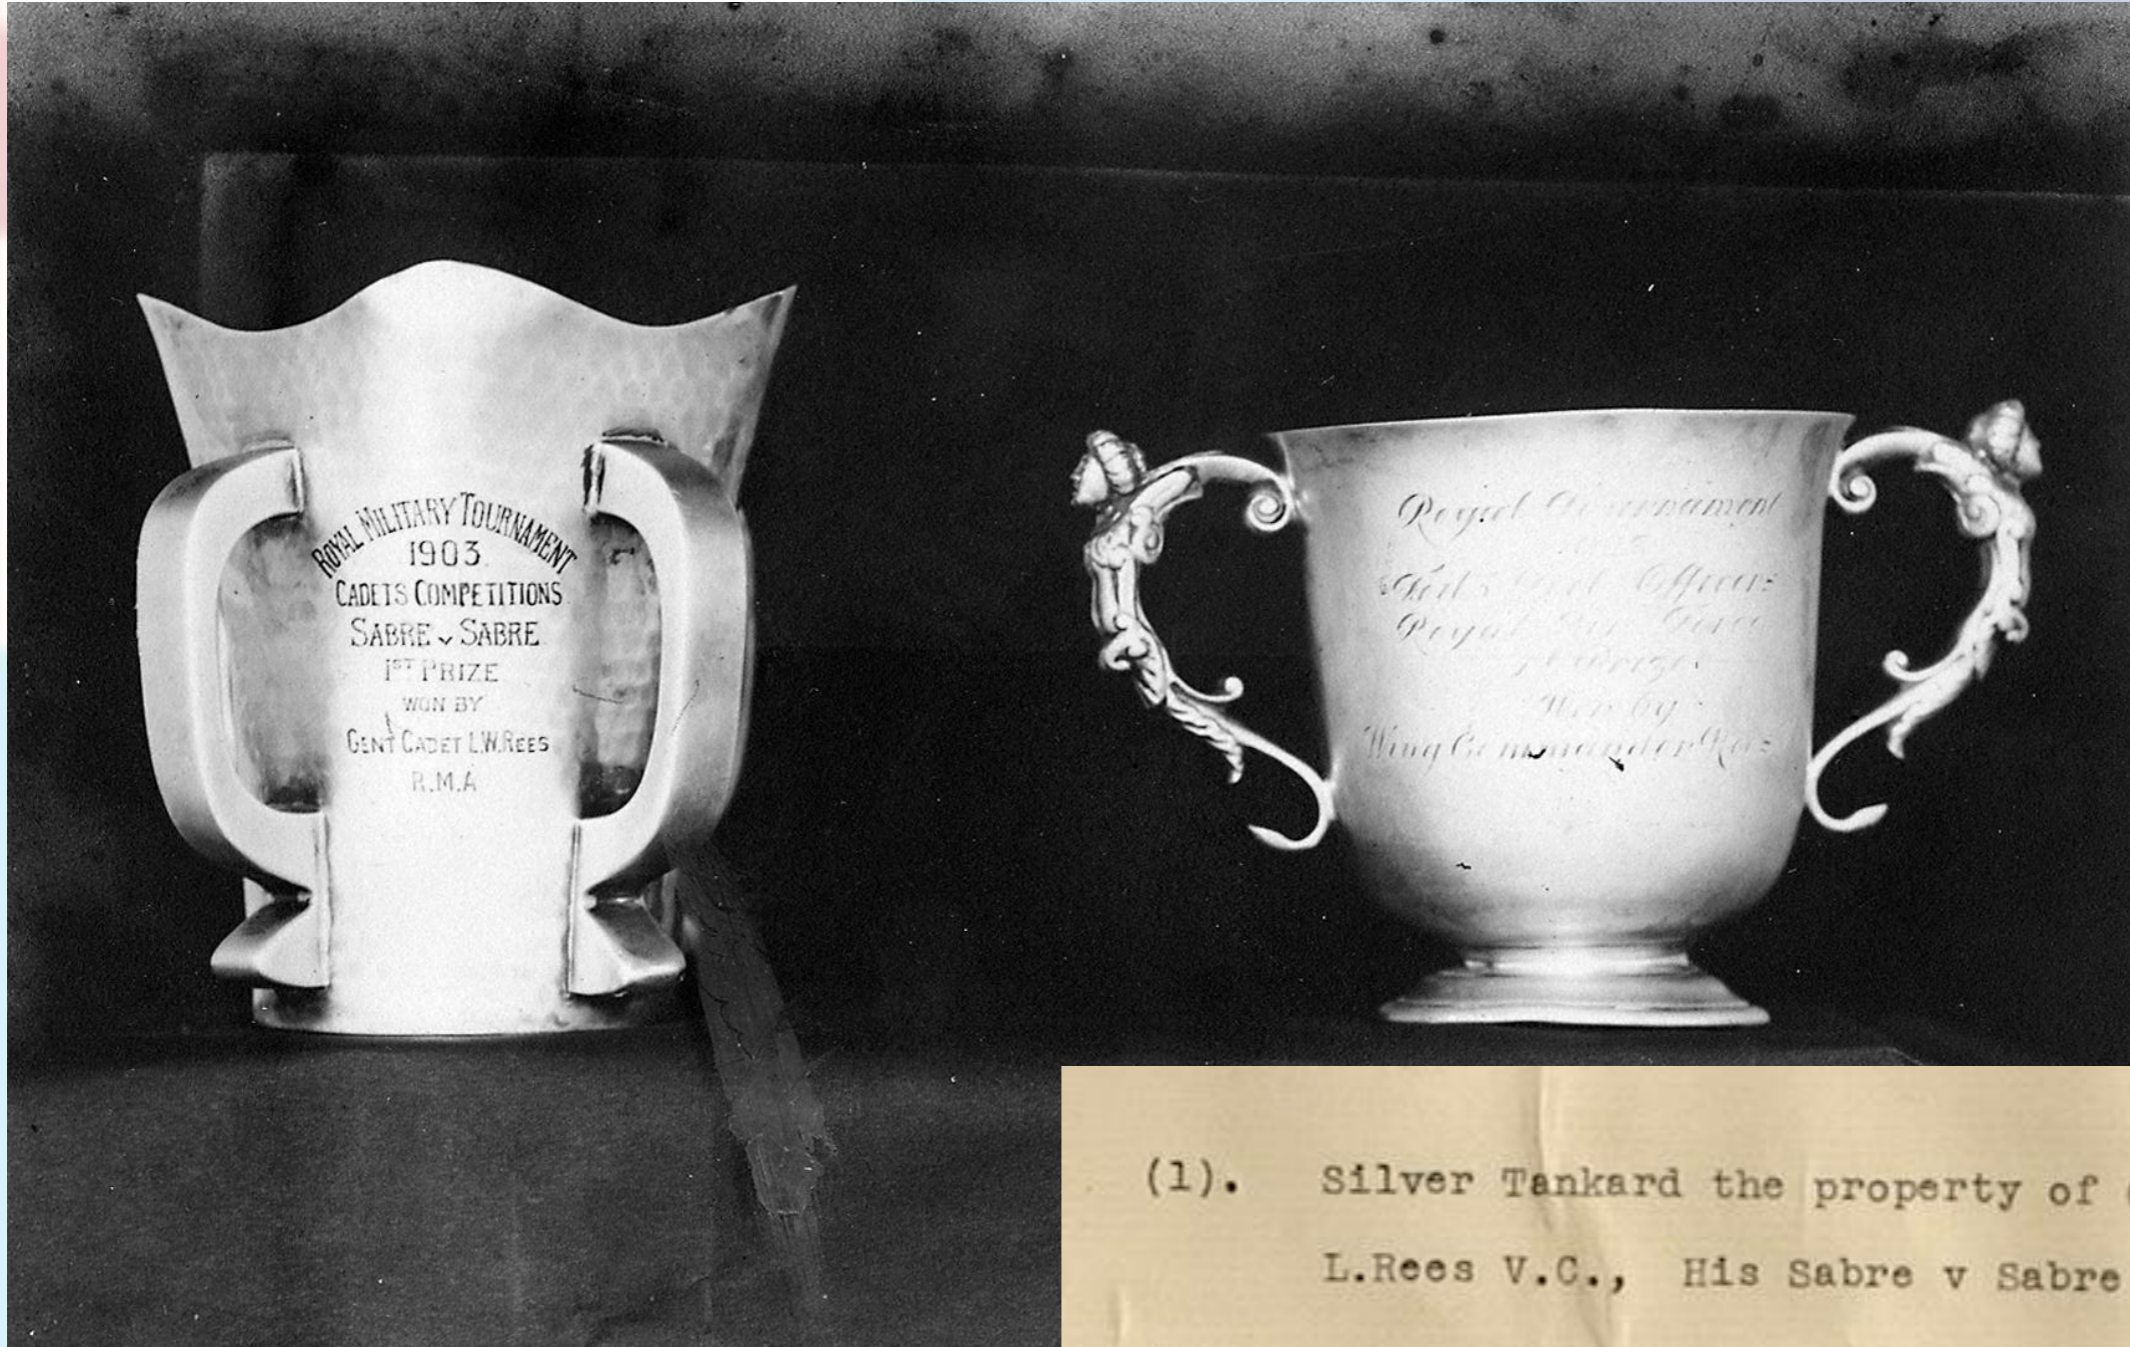 ROYAL MILITARY TOURNAMENT
1903.
CADETS COMPETITIONS
SABRE v SABRE
1ST PRIZE
WON BY
GENT CADET L.W.REES
R.M.A
Royal Tournament
Royal Air Force
Won by
Wing Commander Rees
(1). Silver Tankard the property of
L.Rees V.C., His Sabre v Sabre